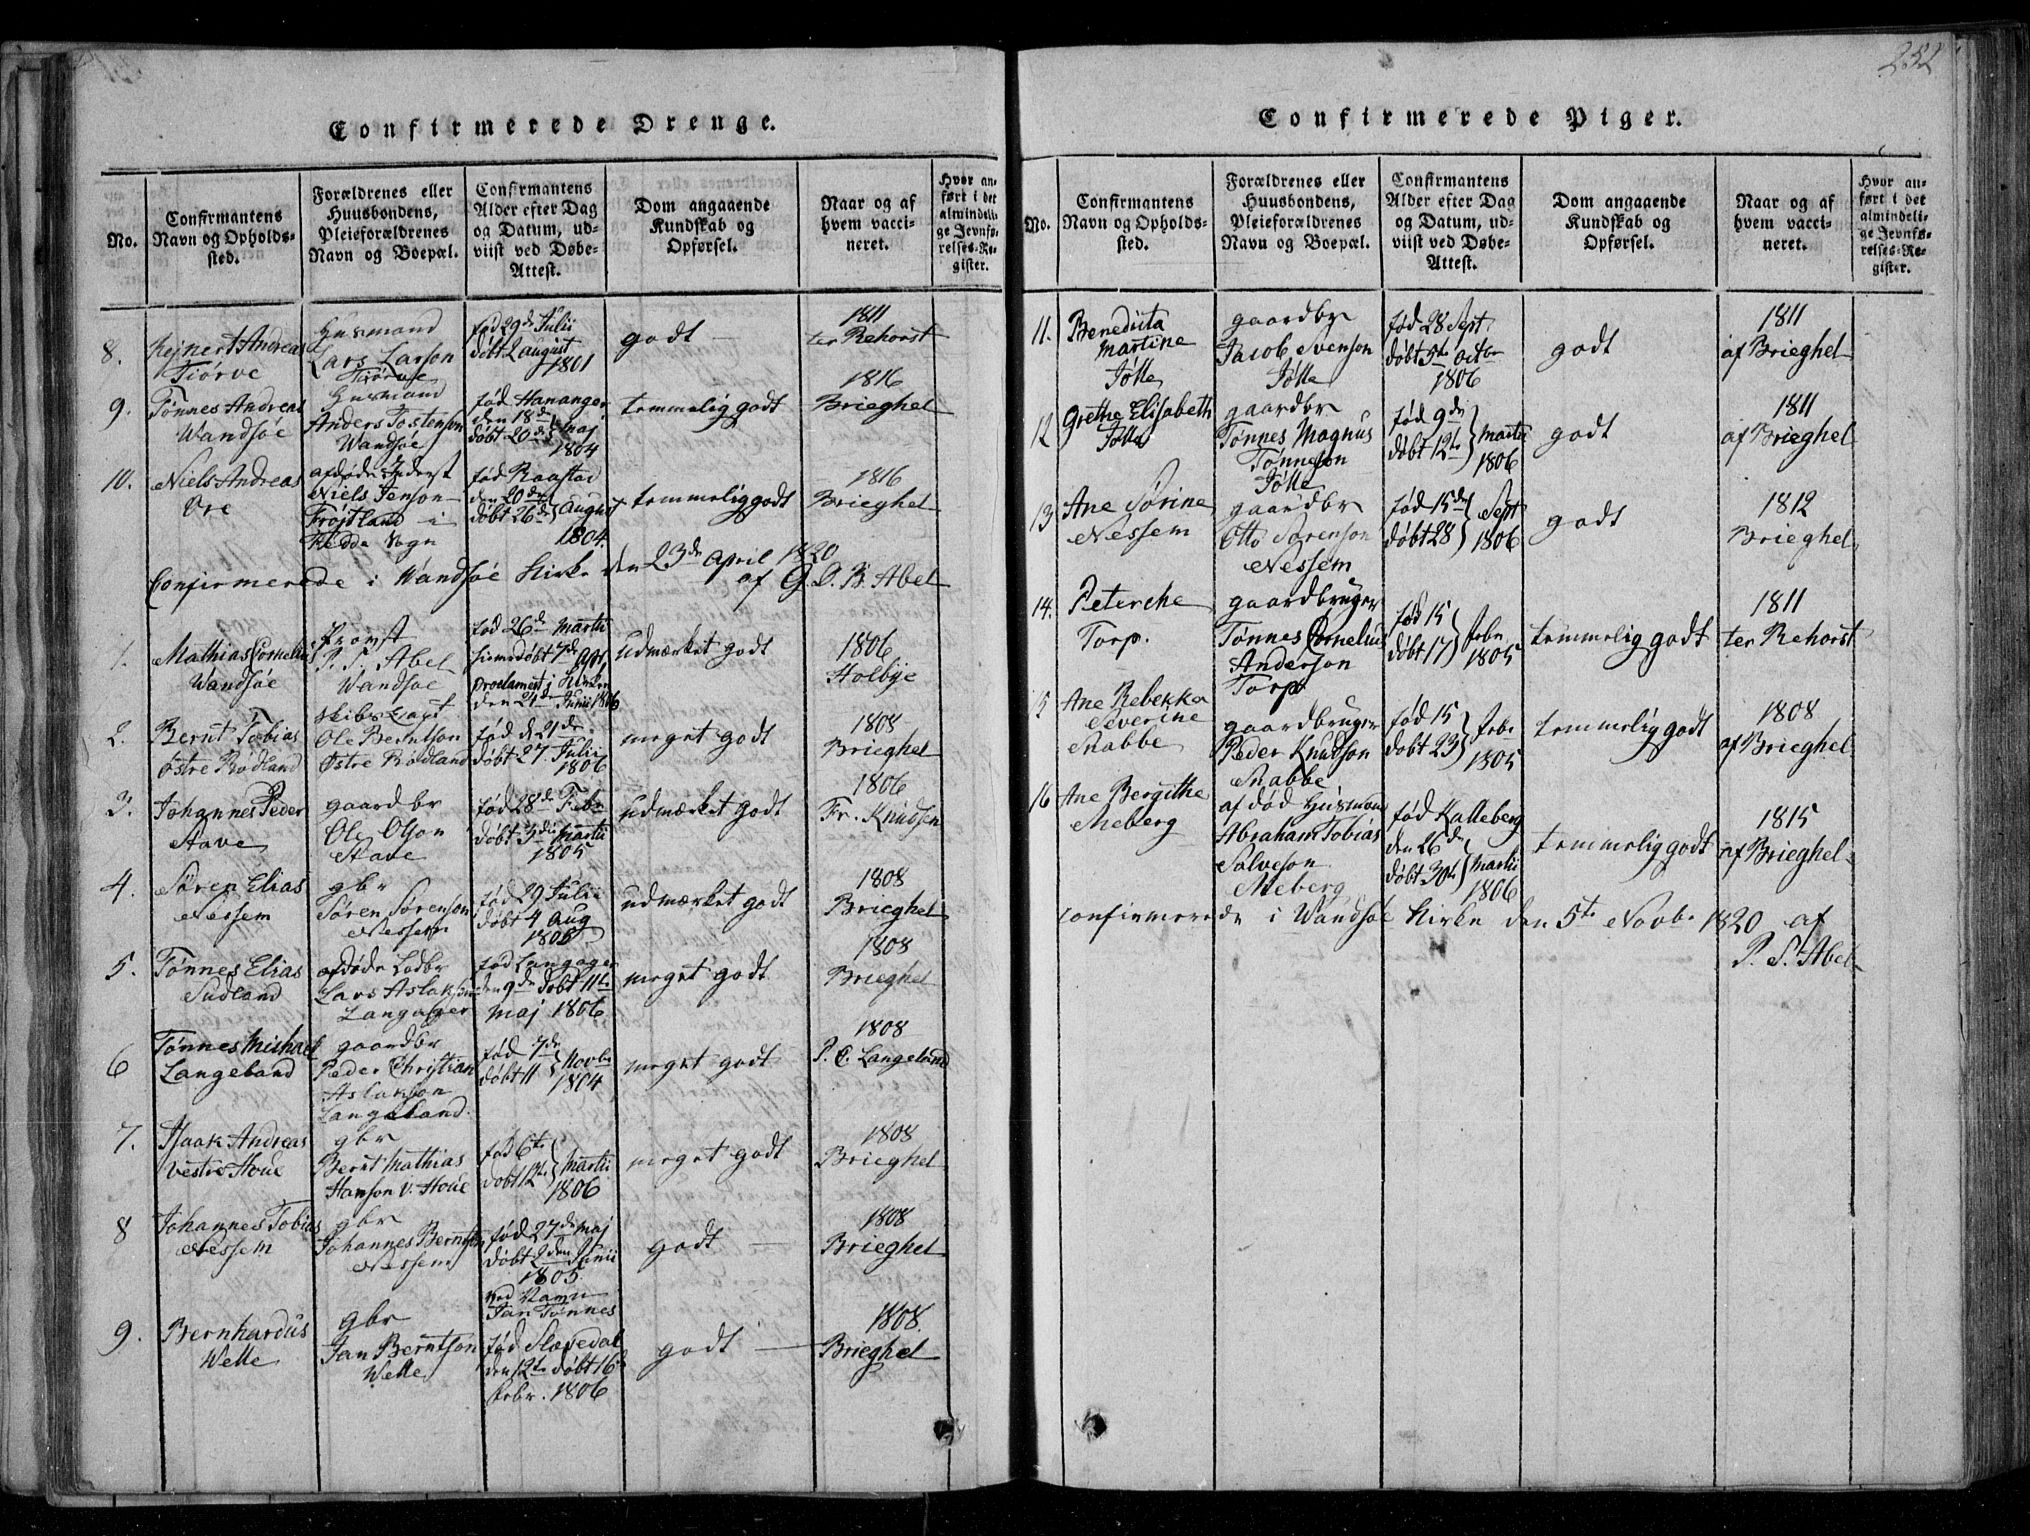 Confirmerede Drenge.
No.
Confirmantens
Navn og Opholds-
sted.
Forældrenes eller
Huusbondens,
Pleieforældrenes
Navn og Boepæl.
Confirmantens
Alder efter Dag
og Datum, ud-
viist ved Døbe-
Attest.
Dom angaaende
Kundskab og
Opførsel.
Naar og af
hvem vacci-
neret.
Hvor an-
ført i det
almindeli-
ge Jevnfø-
relses-Re-
gister.
8.
Rejnert Andreas
Tiörve
Husmand
Lars Larson
Tiörve
fød 29de Julii
døbt 2 august
1801
godt
1811
ter Rehorst
9.
Tønnes Andreas
Wandsøe
Husmand
Anders Tostenson
Wandsøe
fød Hananger
den 18de
døbt 20de } maj
1804
temmelig godt
1816
Brieghel
10.
Niels Andreas
Ore
afdøde Inderst
Niels Jenson
Frøjtland i
Fedde Sogn
fød Raastad
den 20de
døbt 26de } August
1804.
temmelig godt
1816
Brieghel
Confirmerede i Wandsøe Kirke den 23de April 1820
af G. D. B. Abel
1.
Mathias Cornelius
Wandsøe
Provst
P. S. Abel
Wandsøe
fød 26de Martii
hjemedøbt 7de Apr.
proclameret i Kirken
den 24de Junii 1806
udmærket godt
1806
Holbye
2.
Bernt Tobias
Østre Rødland
Skibs Capt
Ole Berntson
Østre Rødland
fød d. 21de
døbt 27 Julii
1806
meget godt
1808
Brieghel
3.
Johannes Peder
Stave
gaardbr
Ole Olson
Stave
fød 28de Febr
døbt 3die Martii
1805
udmærket godt
1806
Fr. Knudsen
4.
Søren Elias
Nessem
gbr
Søren Sørenson
Nessem
fød 29 Julii
døbt 4 Aug
1805
udmærket godt
1808
Brieghel
5.
Tønnes Elias
Sudland
afdøde Lodbr
Lars Aslakson
Langager
fød Langager
den 9de døbt 11te
Maj 1806
meget godt
1808
Brieghel
6
Tønnes Michael
Langeland
gaardbr
Peder Christian
Aslakson
Langeland.
fød 7de
døbt 11 } Novbr
1804
meget godt
1808
P. C. Langeland
7.
Isaak Andreas
Vestre Houe
gbr
Bernt Mathias
Hanson v. Houe
fød 6te
døbt 12te } Martii
1806
meget godt
1808
Brieghel
8
Johannes Tobias
Nessem
gbr
Johannes Berntson
Nessem
fød 27de Maj
døbt 2den Junii
1805.
godt
1808
Brieghel
9.
Bernhardus
Welle
gbr
Jan Berntson
Welle
ved Navn
Jan Tønnes
fød Slævedal
den 12te døbt 16de
Febr. 1806
godt
1808.
Brieghel
252
Confirmerede Piger.
No.
Confirmantens
Navn og Opholds-
sted.
Forældrenes eller
Huusbondens,
Pleieforældrenes
Navn og Boepæl.
Confirmantens
Alder efter Dag
og Datum, ud-
viist ved Døbe-
Attest.
Dom angaaende
Kundskab og
Opførsel.
Naar og af
hvem vacci-
neret.
Hvor an-
ført i det
almindeli-
ge Jevnfø-
relses-Re-
gister.
11.
Benedicta
Martine
Jølle
gaardbr
Jacob Svenson
Jølle
fød 28 Sept
døbt 5te octbr
1806
godt
1811
af Brieghel
12
Grethe Elisabeth
Jølle
gaardbr
Tønnes Magnus
Tønneson
Jølle
fød 9de
døbt 12te } Martii
1806
godt
1811
af Brieghel
13
Ane Sørine
Nessem
gaardbr
Otto Sørenson
Nessem
fød 15de
døbt 28 } Sept
1806
godt
1812
Brieghel
14.
Peterche
Torp.
gaardbruger
Tønnes Cornelius
Anderson
Torp
fød 15
døbt 17 } Febr
1805
temmelig godt
1811
ter Rehorst
15
Ane Rebekka
Severine
Stabbe
gaardbruger
Peder Knudson
Stabbe
fød 15
døbt 23 } Febr
1805
temmelig godt
1808
af Brieghel
16
Ane Bergithe
Meberg
afdød Husmand
Abraham Tobias
Salveson
Meberg
fød Kalleberg
den 26de
døbt 30te } Martii
1806
temmelig godt
1815
af Brieghel
confirmerede i Wandsøe Kirke den 5te Novbr 1820 af
P. S. Abel